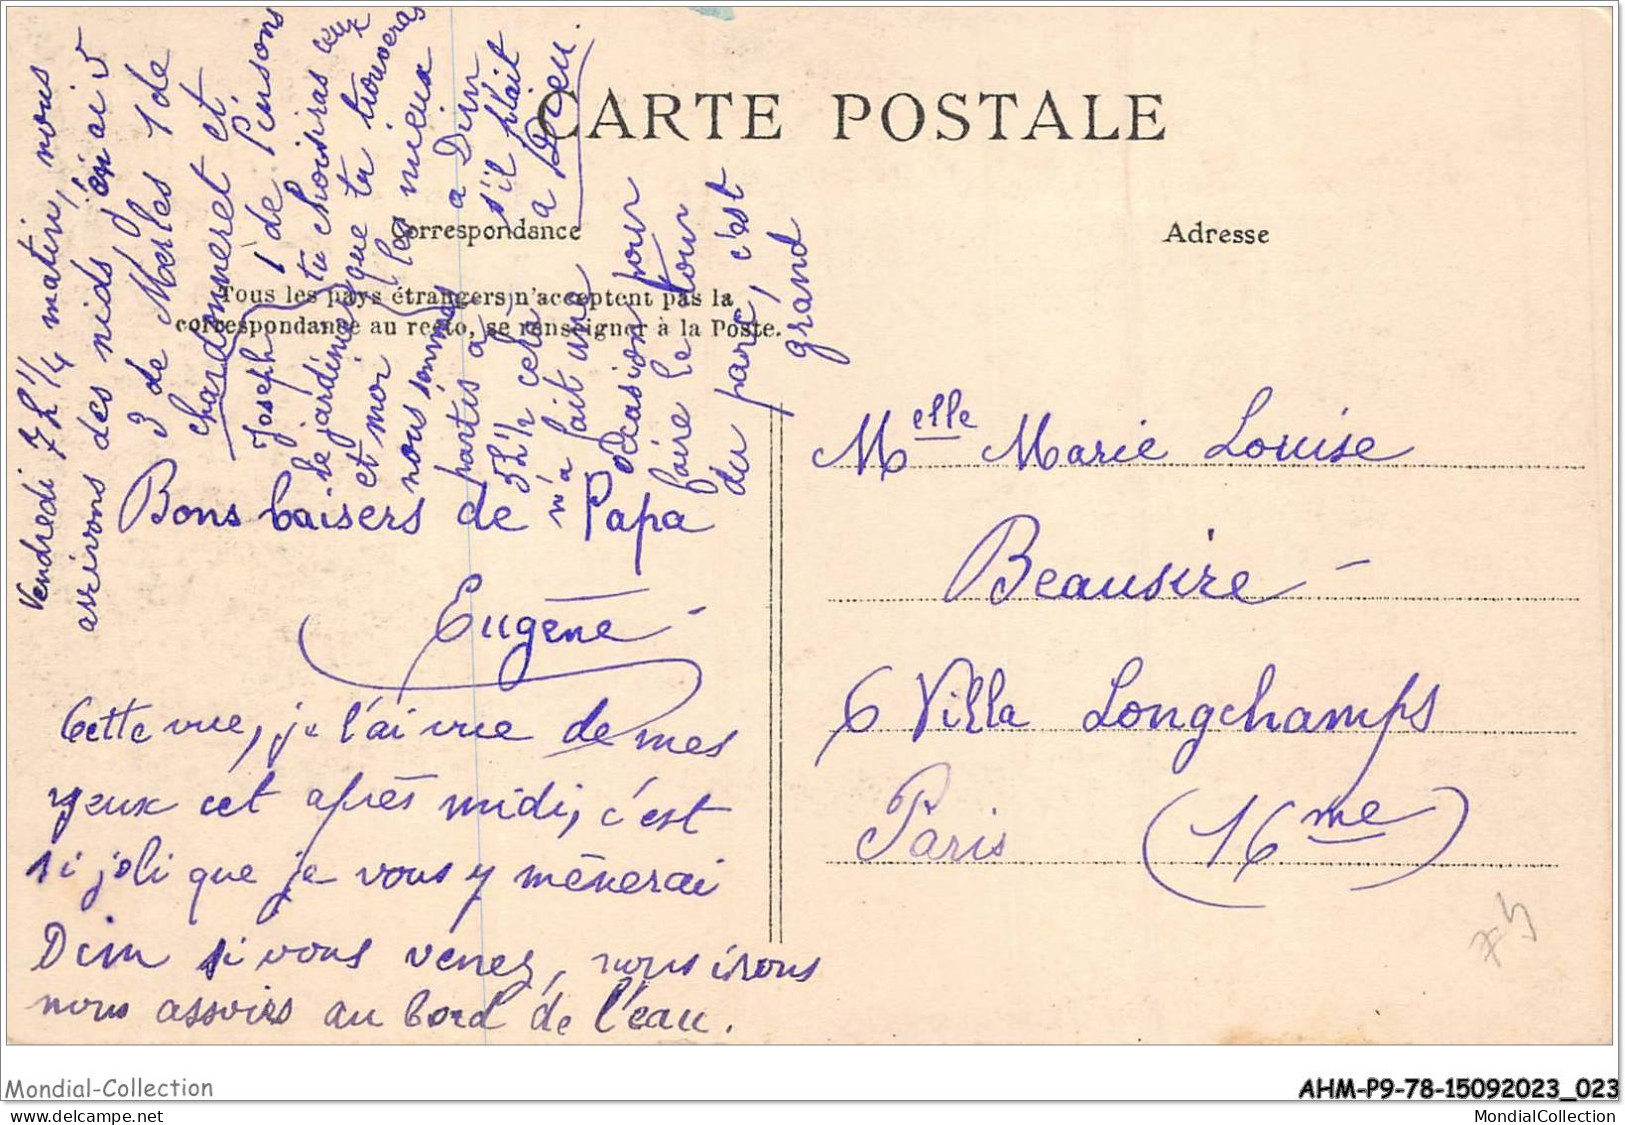 CARTE POSTALE
Correspondance
Adresse
Tous les pays étrangers n'acceptent pas la
correspondance au recto, se renseigner à la Poste.
Vendredi 7h 1/4 matin, nous
arrivons des nids j'en ai 5
3 de Merles 1 de
chardonneret et
1 de Pinsons
Joseph tu choisiras ceux
que tu trouveras
le jardinier
et moi les mieux
nous sommes à Dim
partis à s'il plait
5h 1/2 cela à Dieu.
n'a fait une
occasion pour
faire le tour
du parc, c'est
grand
Bons baisers de Papa
Eugène
Cette vue, je l'ai vue de mes
yeux cet après midi, c'est
si joli que je vous y mènerai
Dim si vous venez, nous irons
nous assoirs au bord de l'eau.
Melle Marie Louise
Beausire
6 Villa Longchamps
Paris (16me)
Mondial-Collection
AHM-P9-78-15092023_023
www.delcampe.net
MondialCollection